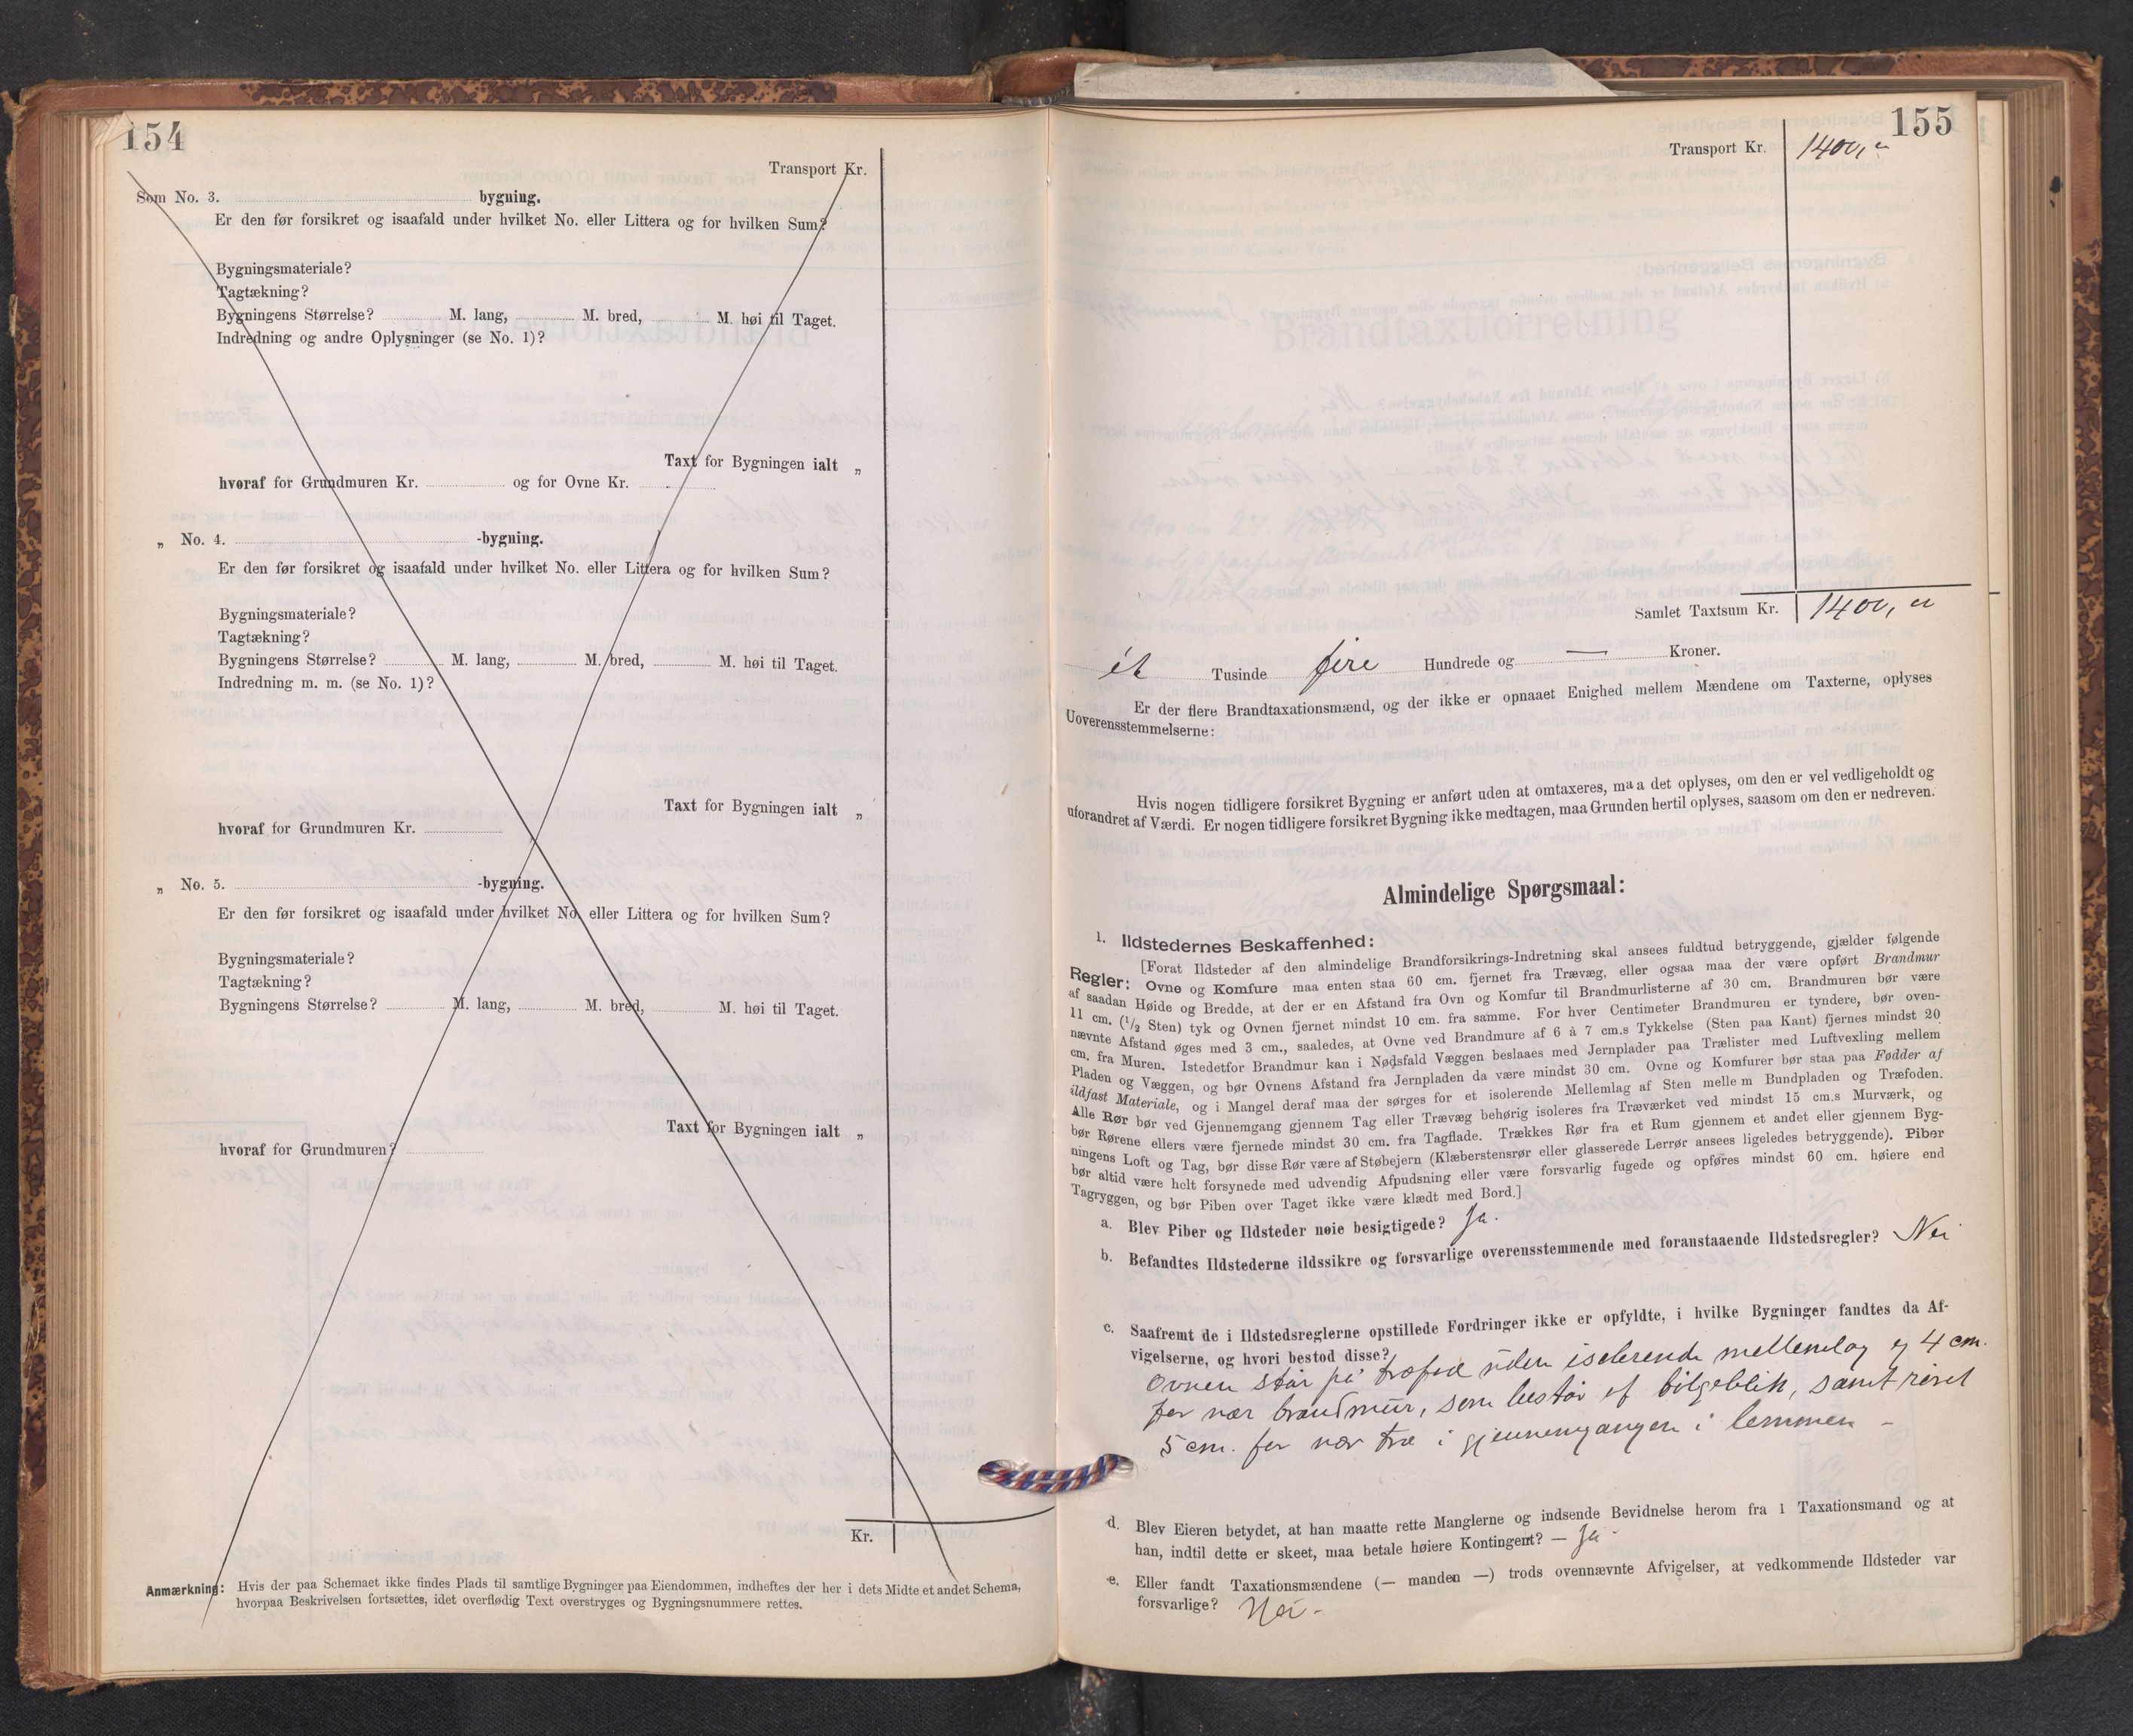 154
Transport Kr.
Som No. 3. bygning.
Er den før forsikret og isaafald under hvilket No. eller Littera og for hvilken Sum?
Bygningsmateriale?
Tagtækning?
Bygningens Størrelse? M. lang, M. bred, M. høi til Taget.
Indredning og andre Oplysninger (se No. 1)?
Taxt for Bygningen ialt „
hvoraf for Grundmuren Kr. og for Ovne Kr.
„ No. 4. -bygning.
Er den før forsikret og isaafald under hvilket No. eller Littera og for hvilken Sum?
Bygningsmateriale?
Tagtækning?
Bygningens Størrelse? M. lang, M. bred, M. høi til Taget.
Indredning m. m. (se No. 1)?
Taxt for Bygningen ialt „
hvoraf for Grundmuren Kr.
„ No. 5. -bygning.
Er den før forsikret og isaafald under hvilket No. eller Littera og for hvilken Sum?
Bygningsmateriale?
Tagtækning?
Bygningens Størrelse? M. lang, M. bred, M. høi til Taget.
Taxt for Bygningen ialt „
hvoraf for Grundmuren?
Kr.
Anmærkning: Hvis der paa Schemaet ikke findes Plads til samtlige Bygninger paa Eiendommen, indheftes der her i dets Midte et andet Schema,
hvorpaa Beskrivelsen fortsættes, idet overflødig Text overstryges og Bygningsnummere rettes.
155
Transport Kr. 1400,
Samlet Taxtsum Kr. 1400,
ét Tusinde fire Hundrede og — Kroner.
Er der flere Brandtaxationsmænd, og der ikke er opnaaet Enighed mellem Mændene om Taxterne, oplyses
Uoverensstemmelserne:
Hvis nogen tidligere forsikret Bygning er anført uden at omtaxeres, maa det oplyses, om den er vel vedligeholdt og
uforandret af Værdi. Er nogen tidligere forsikret Bygning ikke medtagen, maa Grunden hertil oplyses, saasom om den er nedreven.
Almindelige Spørgsmaal:
1. Ildstedernes Beskaffenhed:
[Forat Ildsteder af den almindelige Brandforsikrings-Indretning skal ansees fuldtud betryggende, gjælder følgende
Regler: Ovne og Komfure maa enten staa 60 cm. fjernet fra Trævæg, eller ogsaa maa der være opført Brandmur
af saadan Høide og Bredde, at der er en Afstand fra Ovn og Komfur til Brandmurlisterne af 30 cm. Brandmuren bør være
11 cm. (1/2 Sten) tyk og Ovnen fjernet mindst 10 cm. fra samme. For hver Centimeter Brandmuren er tyndere, bør oven-
nævnte Afstand øges med 3 cm., saaledes, at Ovne ved Brandmure af 6 à 7 cm.s Tykkelse (Sten paa Kant) fjernes mindst 20
cm. fra Muren. Istedetfor Brandmur kan i Nødsfald Væggen beslaaes med Jernplader paa Trælister med Luftvexling mellem
Pladen og Væggen, og bør Ovnens Afstand fra Jernpladen da være mindst 30 cm. Ovne og Komfurer bør staa paa Fødder af
ildfast Materiale, og i Mangel deraf maa der sørges for et isolerende Mellemlag af Sten mellem Bundpladen og Træfoden.
Alle Rør bør ved Gjennemgang gjennem Tag eller Trævæg behørig isoleres fra Træværket ved mindst 15 cm.s Murværk, og
bør Rørene ellers være fjernede mindst 30 cm. fra Tagflade. Trækkes Rør fra et Rum gjennem et andet eller gjennem Byg-
ningens Loft og Tag, bør disse Rør være af Støbejern (Klæberstensrør eller glasserede Lerrør ansees ligeledes betryggende). Piber
bør altid være helt forsynede med udvendig Afpudsning eller være forsvarlig fugede og opføres mindst 60 cm. høiere end
Tagryggen, og bør Piben over Taget ikke være klædt med Bord.]
a. Blev Piber og Ildsteder nøie besigtigede? Ja.
b. Befandtes Ildstederne ildssikre og forsvarlige overensstemmende med foranstaaende Ildstedsregler? Nei
c. Saafremt de i Ildstedsreglerne opstillede Fordringer ikke er opfyldte, i hvilke Bygninger fandtes da Af-
vigelserne, og hvori bestod disse?
Ovnen står på træfod uden isolerende mellemlag og 4 cm.
for nær brandmur, som består af bølgeblik, samt røret
5 cm. for nær træ i gjennemgangen i lemmen –
d. Blev Eieren betydet, at han maatte rette Manglerne og indsende Bevidnelse herom fra 1 Taxationsmand og at
han, indtil dette er skeet, maa betale høiere Kontingent? — Ja -
e. Eller fandt Taxationsmændene (— manden —) trods ovennævnte Afvigelser, at vedkommende Ildsteder var
forsvarlige? Nei -